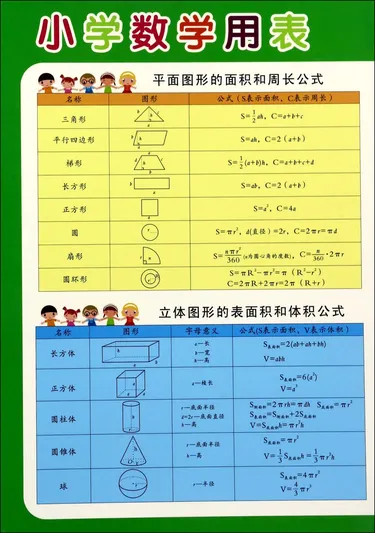 小学数学用表
平面图形的面积和周长公式
名称 图形 公式（S表示面积，C表示周长）
三角形 S=½ah, C=a+b+c
平行四边形 S=ah, C=2（a+b）
梯形 S=½(a+b)h, C=a+b+c+d
长方形 S=ab, C=2（a+b）
正方形 S=a², C=4a
圆 S=πr², d(直径)=2r, C=2πr=πd
扇形 S=nπr²/360 (n为圆心角的度数), C=n/360·2πr
圆环形 S=πR²-πr²=π（R²-r²）
C=2πR+2πr=2π（R+r）
立体图形的表面积和体积公式
名称 图形 字母意义 公式(S表示面积，V表示体积)
长方体 a—长 b—宽 h—高 S表面积=2(ab+ah+bh)
V=abh
正方体 a—棱长 S表面积=6(a²)
V=a³
圆柱体 r—底面半径 d=2r—底面直径 h—高 S侧面积=2πrh=πdh S底面积=πr²
S表面积=S侧面积+2S底面积
V=S底面积h=πr²h
圆锥体 r—底面半径 h—高 S底面积=πr²
V=⅓S底面积h=⅓πr²h
球 r—半径 S表面积=4πr²
V=4/3πr³